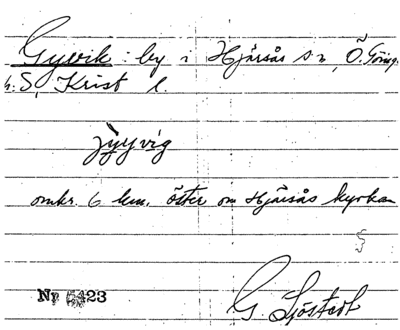 Gyvik: by i Hjärsås sn, Ö. Göing.
h. S, Krist l.
jyyvig
omkr. 6 km. öster om Hjärsås kyrka
No 5423
G. Sjöstedt